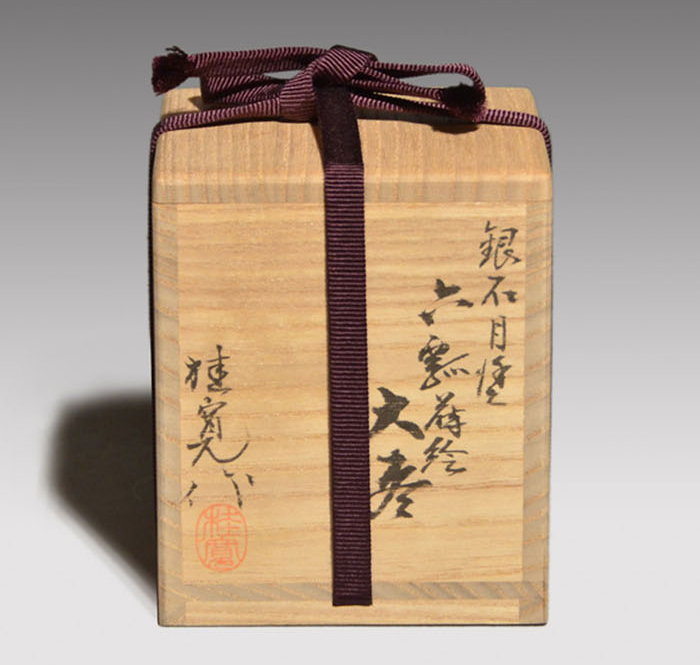 銀石目塗
六瓢蒔絵
大棗
桂寛作
桂寛